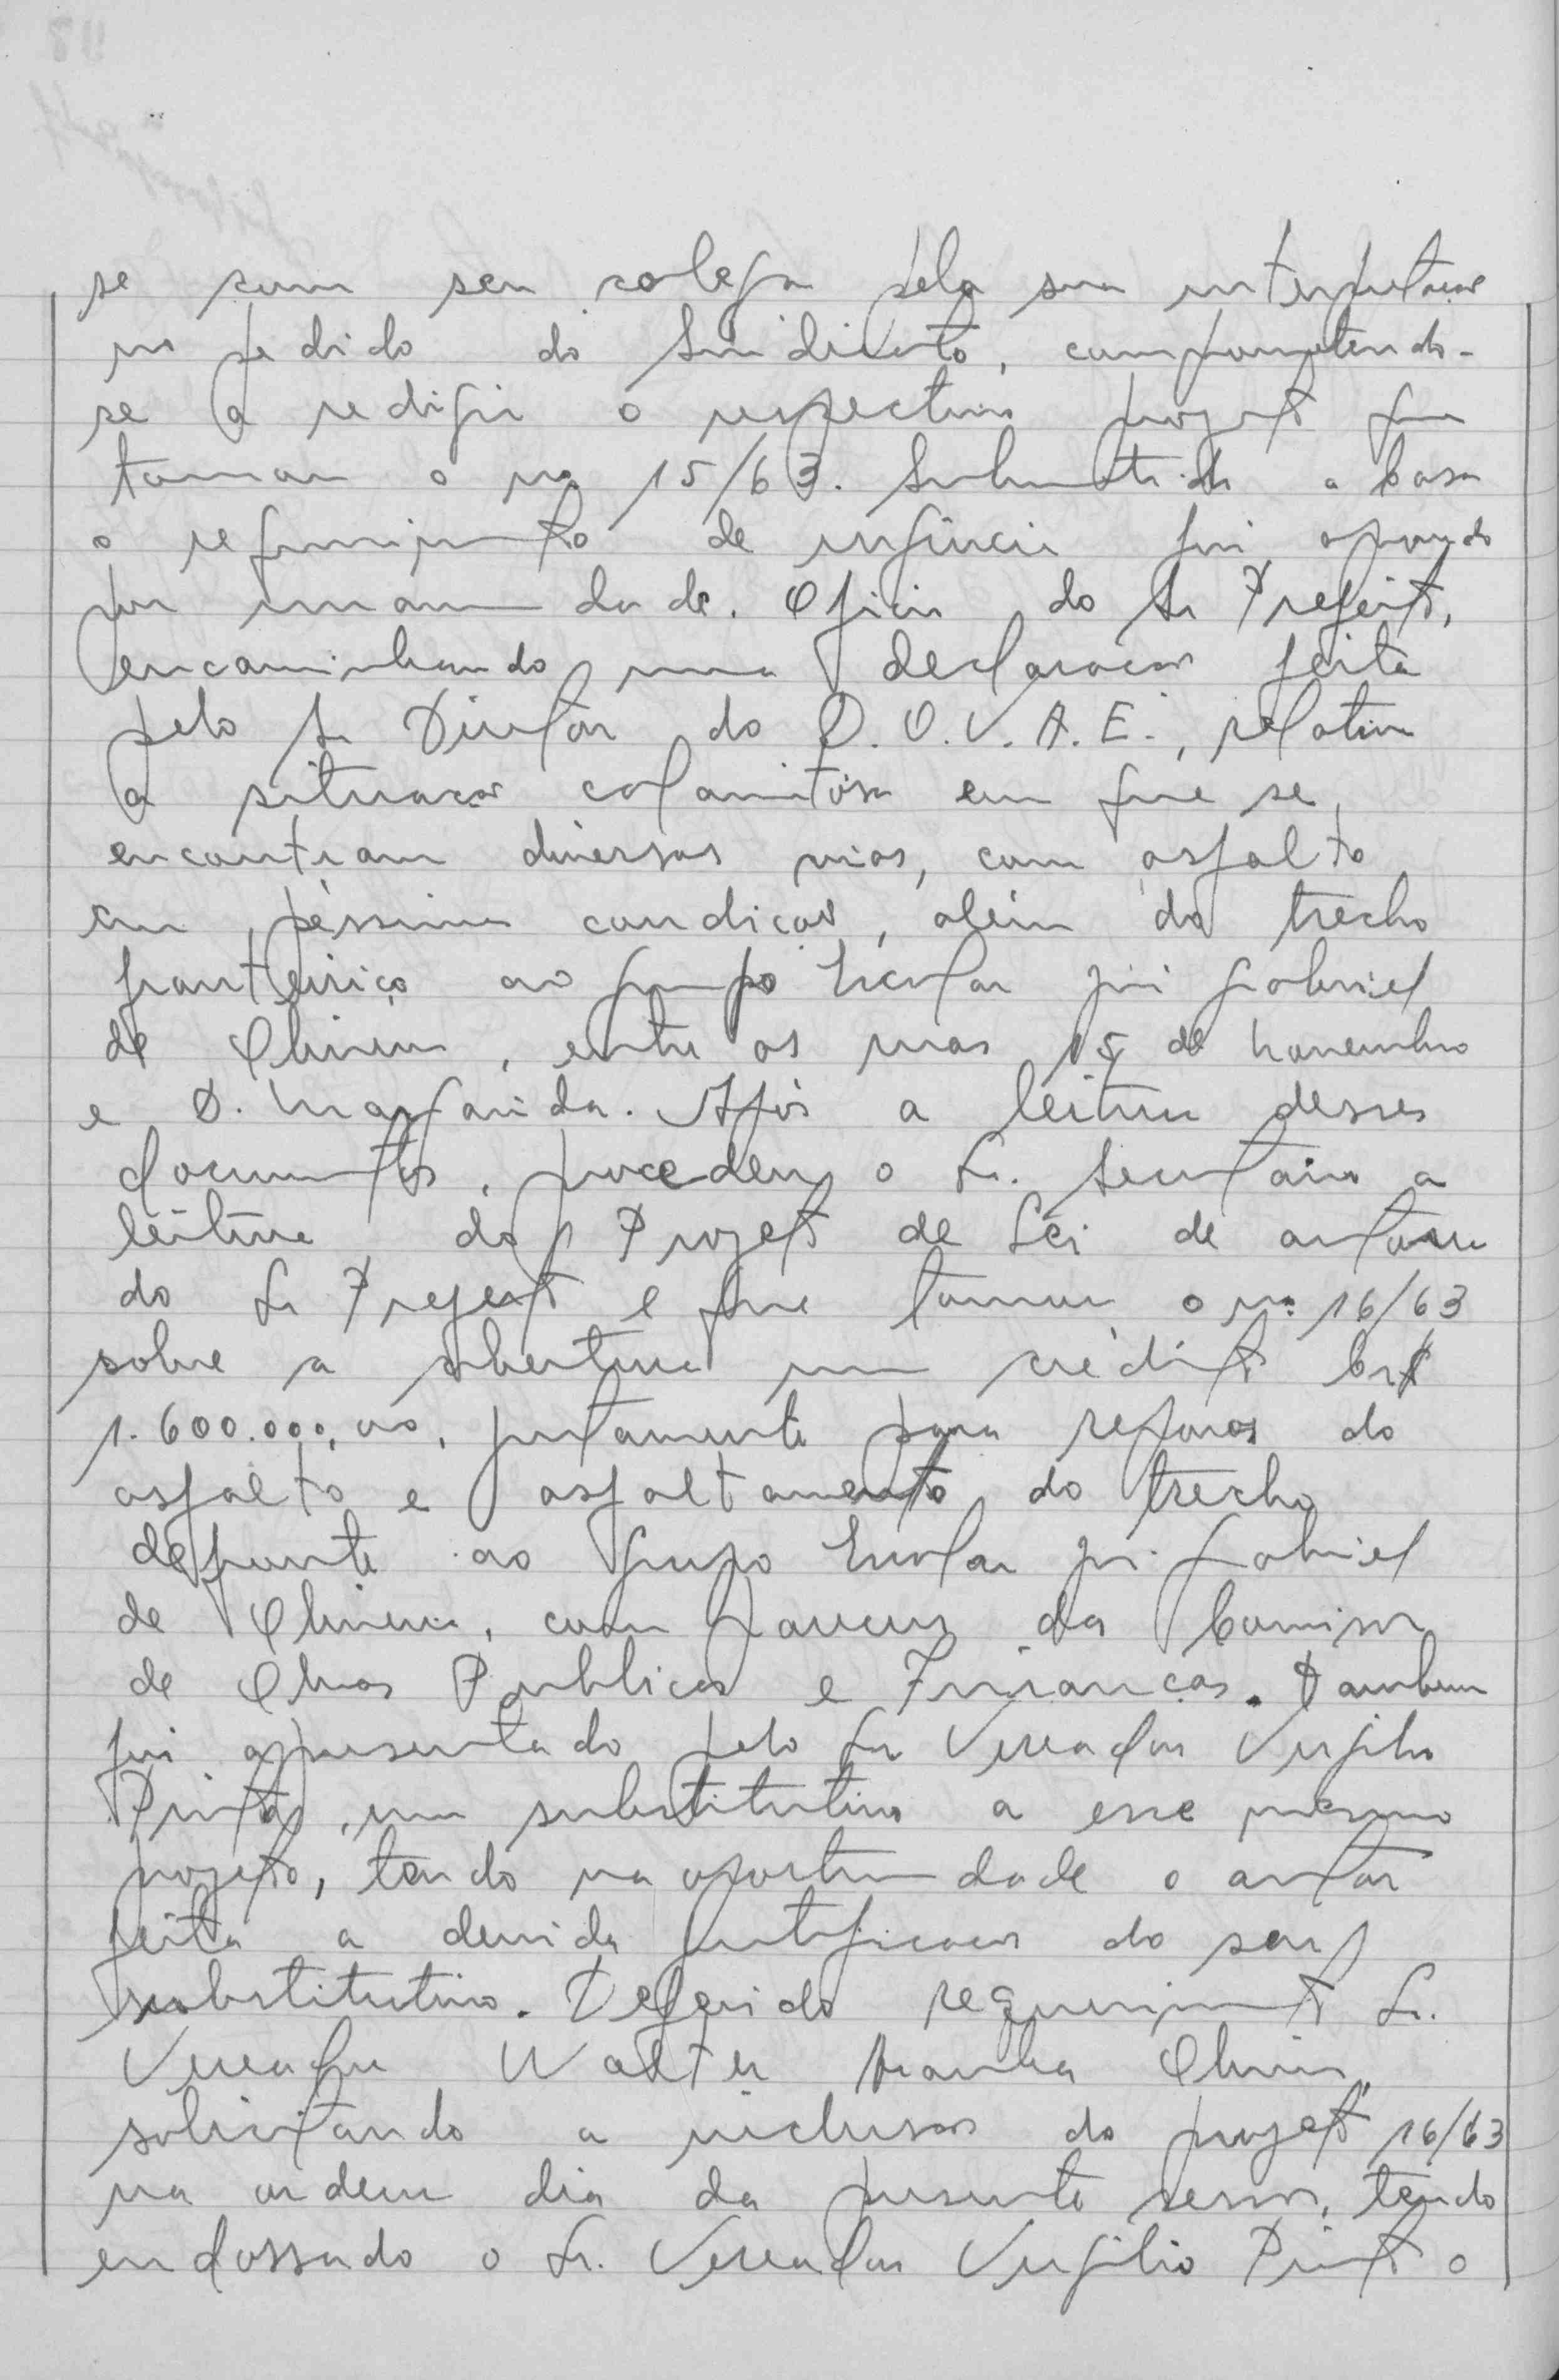 se com seu colega pela sua interpretação
no pedido do Sindicato, comprometendo-
se a redigir o respectivo projeto que
tomou o nº 15/63. Submetido a Casa
o requerimento de urgência foi aprovado
por unanimidade. Oficio do Sr Prefeito,
encaminhando uma declaração feita
pelo Sr Diretor do D.O.V.A.E., relativa
a situação calamitosa em que se
encontram diversas vias, com asfalto
em péssima condição, além do trecho
fronteiriço ao Grupo Escolar José Gabriel
de Oliveira, entre as ruas 15 de Novembro
e D. Margarida. Após a leitura desses
documentos, procedeu o Sr. Secretario a
leitura do Projeto de Lei de autoria
do Sr Prefeito e que tomou o nº 16/63
sobre a abertura um crédito Cr$
1.600.000,00, justamente para reparos do
asfalto e asfaltamento do trecho
defronte ao Grupo Escolar José Gabriel
de Oliveira, com parecer da Comissão
de Obras Publicas e Finanças. Tambem
foi apresentado pelo Sr Vereador Virgilio
Pinto, um substitutivo a esse mesmo
projeto, tendo na oportunidade o autor
feita a devida justificação do seu
substitutivo. Deferido requerimento Sr.
Vereador Walter Oliveira,
solicitando a inclusão do projeto 16/63
na ordem dia da presente sessão, tendo
endossado o Sr. Vereador Virgilio Pinto o